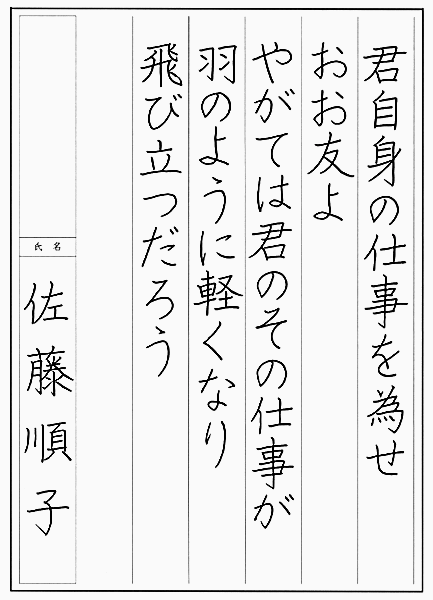 君自身の仕事を為せ
おお友よ
やがては君のその仕事が
羽のように軽くなり
飛び立つだろう
氏名
佐藤順子